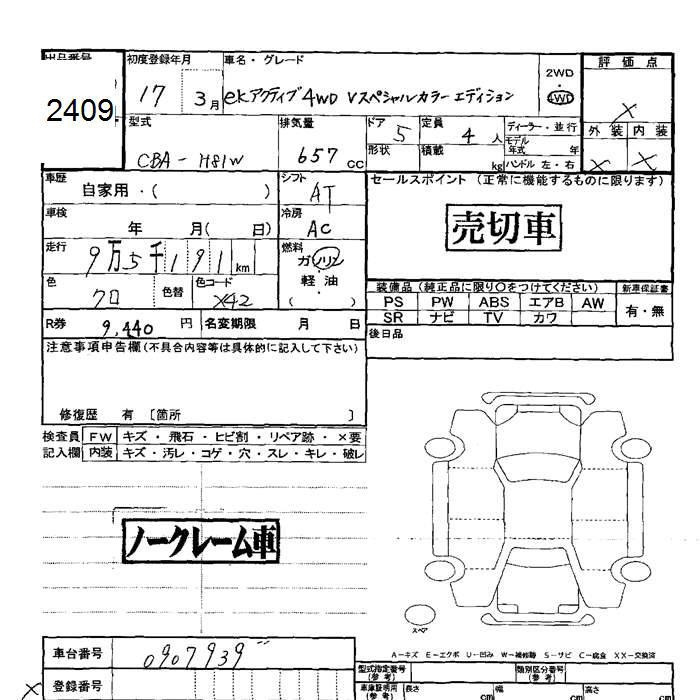 出品番号
2409
初度登録年月
17 3月
車名・グレード
ekアクティブ4WD Vスペシャルカラーエディション
2WD
4WD
評価点
X
外装 内装
X X
型式
CBA-H81W
排気量
657 CC
ドア 5
形状
定員 4 人
積載 kg
ディーラー・並行
モデル年式 年
ハンドル 左・右
車歴
自家用・( )
シフト
AT
セールスポイント (正常に機能するものに限ります)
売切車
車検
年 月( 日)
冷房
AC
走行
9万5千191 km
燃料
ガソリン
軽・油
( )
色
クロ
色替
色コード
X42
装備品 (純正品に限り○をつけてください)
新車保証書
PS PW ABS エアB AW
SR ナビ TV カワ
有・無
R券 9,440 円
名変期限 月 日
後日品
注意事項申告欄(不具合内容等は具体的に記入して下さい)
修復歴 有 [箇所 ]
検査員記入欄
FW キズ・飛石・ヒビ割・リペア跡・×要
内装 キズ・汚レ・コゲ・穴・スレ・キレ・破レ
ノークレーム車
スペア
A-キズ E-エクボ U-凹み W-補修跡 S-サビ C-腐食 XX-交換済
車台番号
0907939
登録番号
X
型式指定番号(参考)
類別区分番号(参考)
車庫証明用(参考)
長さ cm
幅 cm
高さ cm